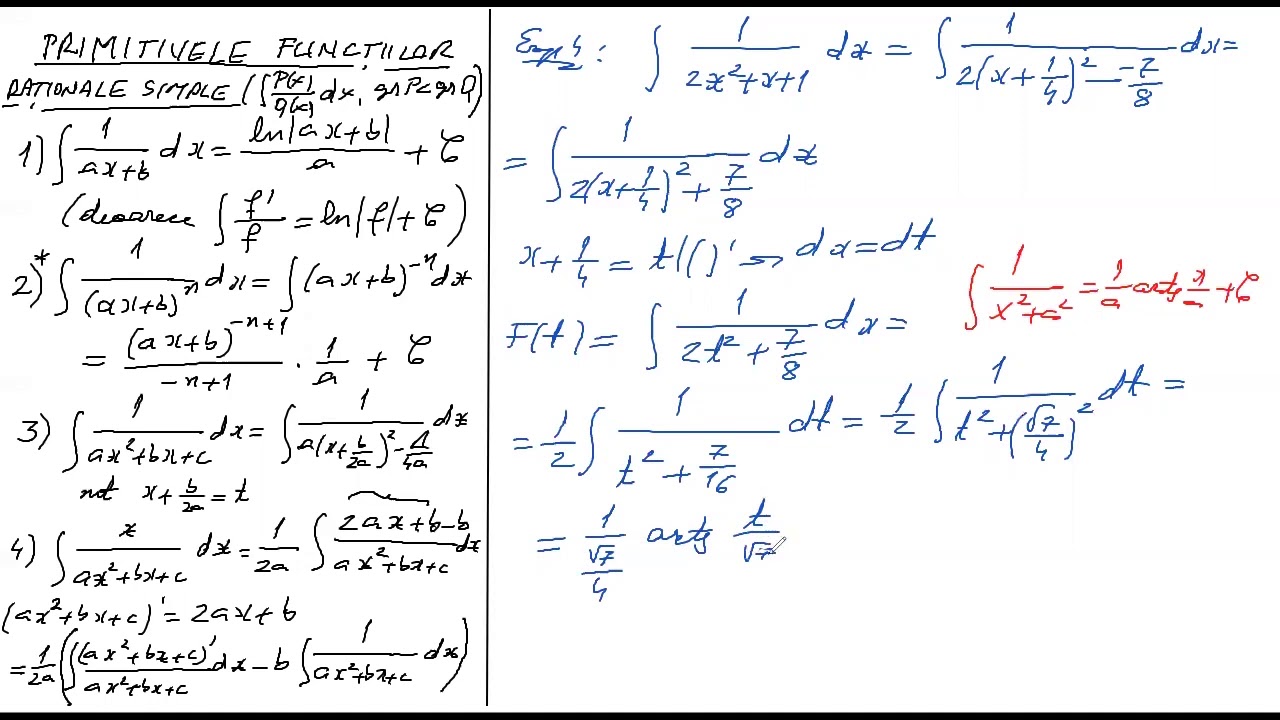 PRIMITIVELE FUNCȚIILOR
RAȚIONALE SIMPLE (∫ P(x)/Q(x) dx, gr P < gr Q)
1) ∫ 1/(ax+b) dx = ln|ax+b|/a + C
(deoarece ∫ f'/f = ln|f| + C)
2)* ∫ 1/(ax+b)^n dx = ∫ (ax+b)^(-n) dx
= (ax+b)^(-n+1)/(-n+1) · 1/a + C
3) ∫ 1/(ax²+bx+c) dx = ∫ 1/(a(x+b/2a)² - Δ/4a) dx
not x + b/2a = t
4) ∫ x/(ax²+bx+c) dx = 1/2a ∫ (2ax+b-b)/(ax²+bx+c) dx
(ax²+bx+c)' = 2ax+b
= 1/2a (∫ (ax²+bx+c)'/(ax²+bx+c) dx - b ∫ 1/(ax²+bx+c) dx)
: ∫ 1/(2x²+x+1) dx = ∫ 1/(2(x+1/4)² - -7/8) dx =
= ∫ 1/(2(x+1/4)² + 7/8) dx
x + 1/4 = t |()' → dx = dt
∫ 1/(x²+a²) = 1/a arctg x/a + C
F(t) = ∫ 1/(2t² + 7/8) dx =
= 1/2 ∫ 1/(t² + 7/16) dt = 1/2 ∫ 1/(t² + (√7/4)²) dt =
= 1/(√7/4) arctg t/√7